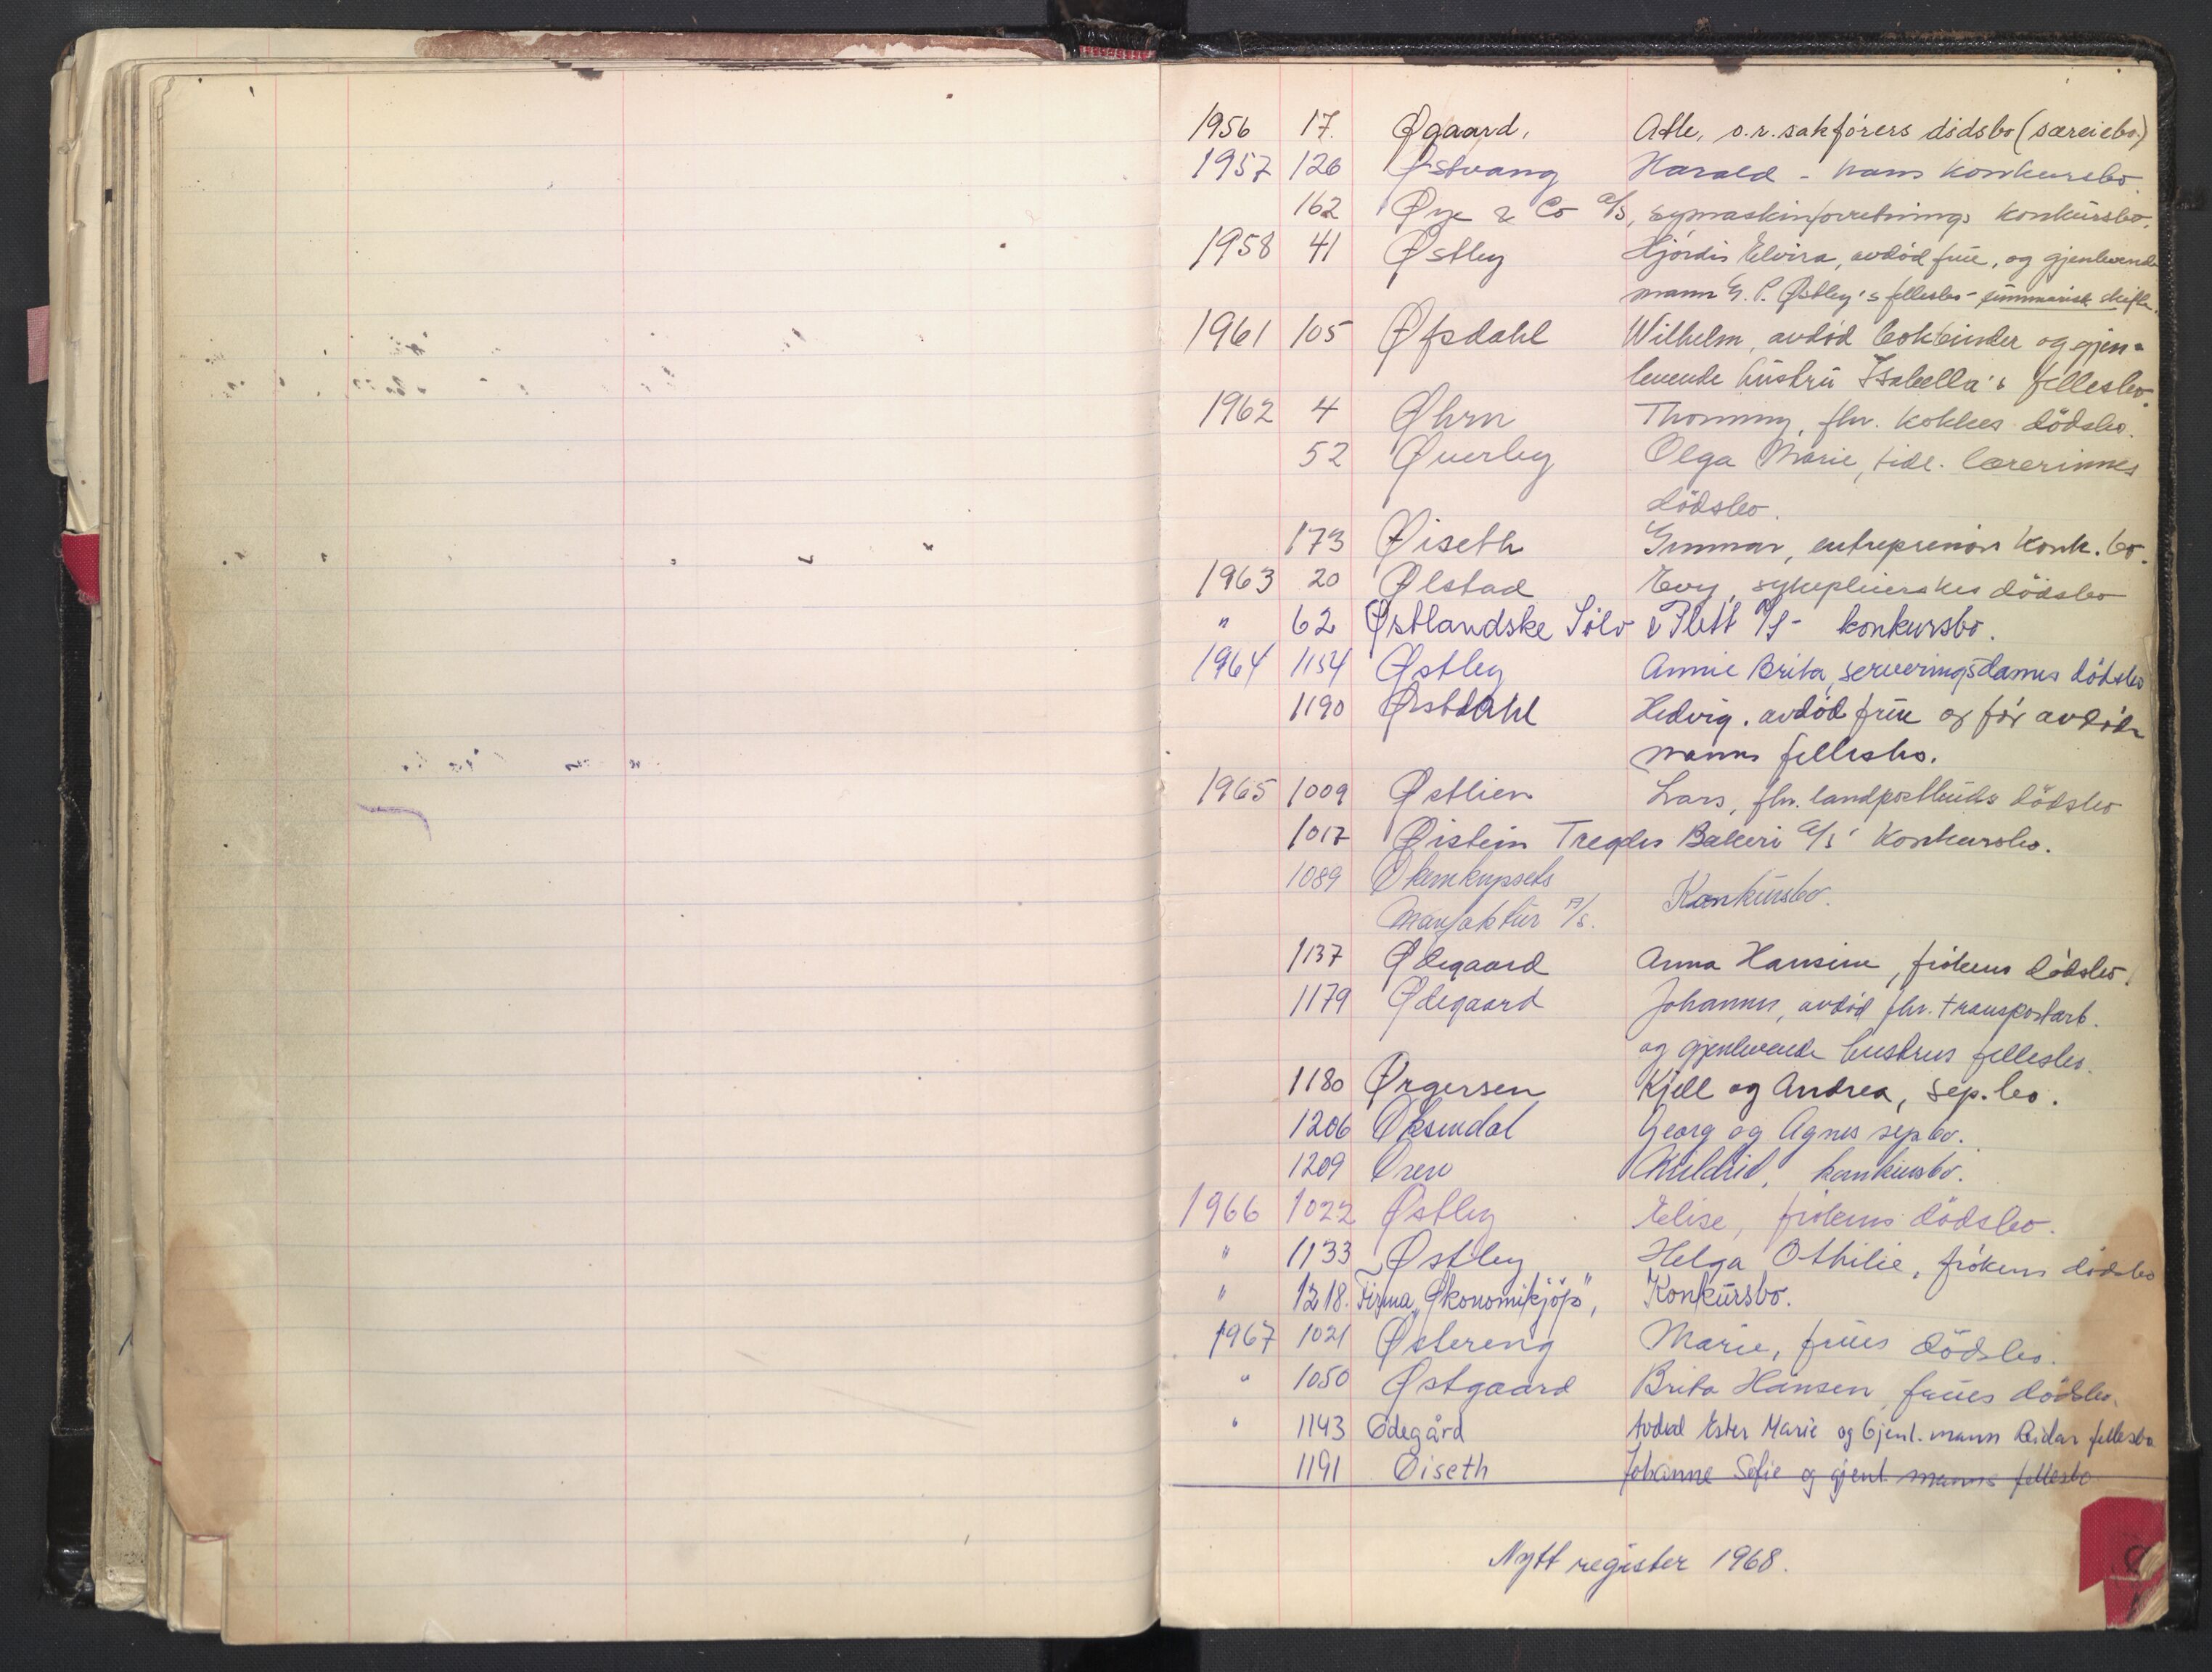 1956 17. Øgaard, Atle, o.r.sakførers dødsbo (særeiebo.)
1957 126 Østvang Harald - hans konkursbo.
162 Øye & Co A/S, symaskinforretnings konkursbo.
1958 41 Østby Hjørdis Elvira, avdød frue, og gjenlevende
mann G. P. Østby's fellesbo - summarisk skifte.
1961 105 Øfsdahl Wilhelm, avdød bokbinder og gjen=
levende hustru Isabella's fellesbo.
1962 4 Øhrn Thommy, fhv. kokkes dödsbo.
52 Øverby Olga Marie, tidl. lærerinnes
dödsbo.
173 Øiseth Gunnar, entreprenörs konk.bo.
1963 20 Ølstad Evy, sykepleierskes dödsbo
" 62 Østlandske Sølv & Plett A/S - konkursbo.
1964 1154 Østby Annie Brita, serveringsdames dödsbo
1190 Østdahl Hedvig, avdöd frue og för avdöde
manns fellesbo.
1965 1009 Østlien Lars, fhv. landpostbuds dödsbo
1017 Øistein Tregdes Bakeri A/S' konkursbo.
1089
Manufaktur A/S. Konkursbo.
1137 Ødegaard Anna Hansine, frökens dödsbo.
1179 Ødegaard Johannes, avdöd fhv. transportarb.
og gjenlevende hustrus fellesbo.
1180 Ørgersen Kjell og Andrea, sep.bo.
1206 Øksendal Georg og Agnes sepbo.
1209 konkursbo.
1966 1022 Østby Elise, frökens dödsbo.
" 1133 Østby Helga Othilie, frökens dödsbo
" 1218. Firma „Økonomikjöp", Konkursbo.
1967 1021 Østereng Marie, frues dödsbo.
" 1050 Østgaard Brita Hansen, frues dödsbo.
" 1143 Ødegård Avdød Ester Marie og Gjenl. mann Reidar fellesbo
1191 Øiseth Johanne Sofie og gjenl. manns fellesbo
Nytt register 1968.